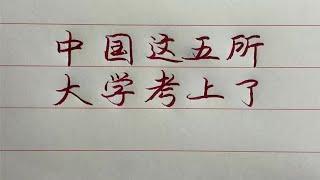 中国这五所
大学考上了